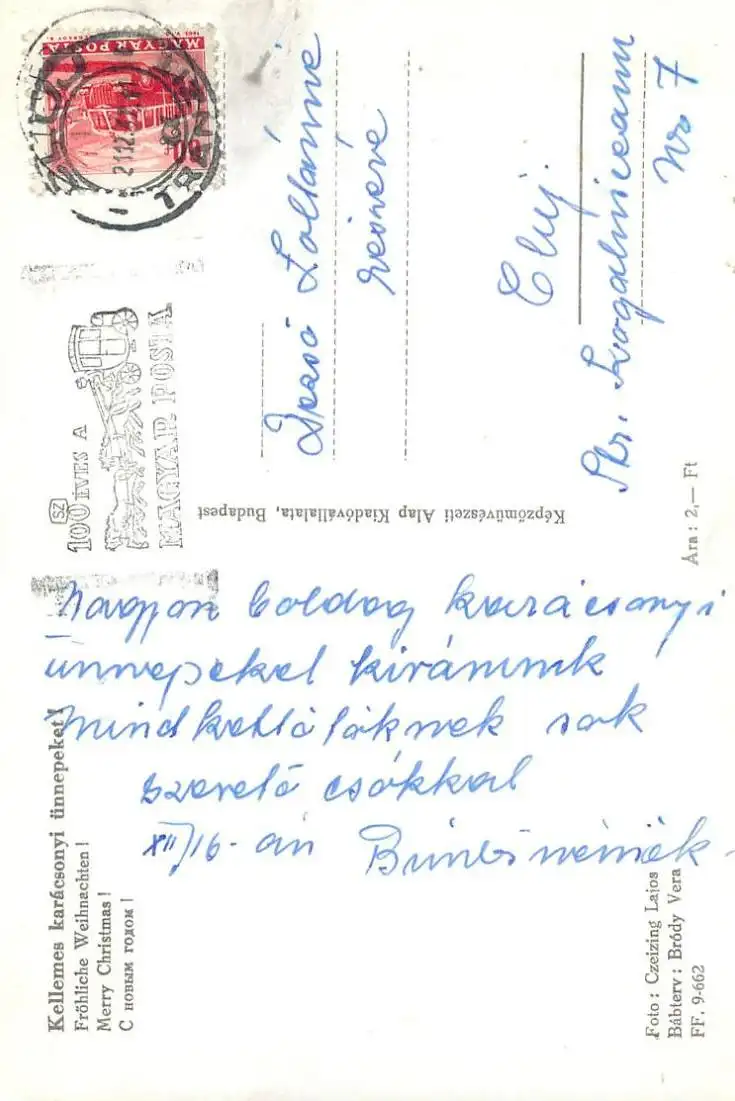 MAGYAR POSTA
21.12.67
100 ÉVES A
MAGYAR POSTA
SZ
Dezső Zoltánné
részére
Cluj.
Str. Kogalniceanu
Nr 7
Képzőművészeti Alap Kiadóvállalata, Budapest
Ára: 2,— Ft
Nagyon boldog karácsonyi
ünnepeket kivánunk
Mindkettőtöknek sok
szerető csókkal
XII/16-án
Kellemes karácsonyi ünnepeket!
Fröhliche Weihnachten!
Merry Christmas!
С новым годом!
Foto: Czeizing Lajos
Bábterv: Bródy Vera
FF. 9-662